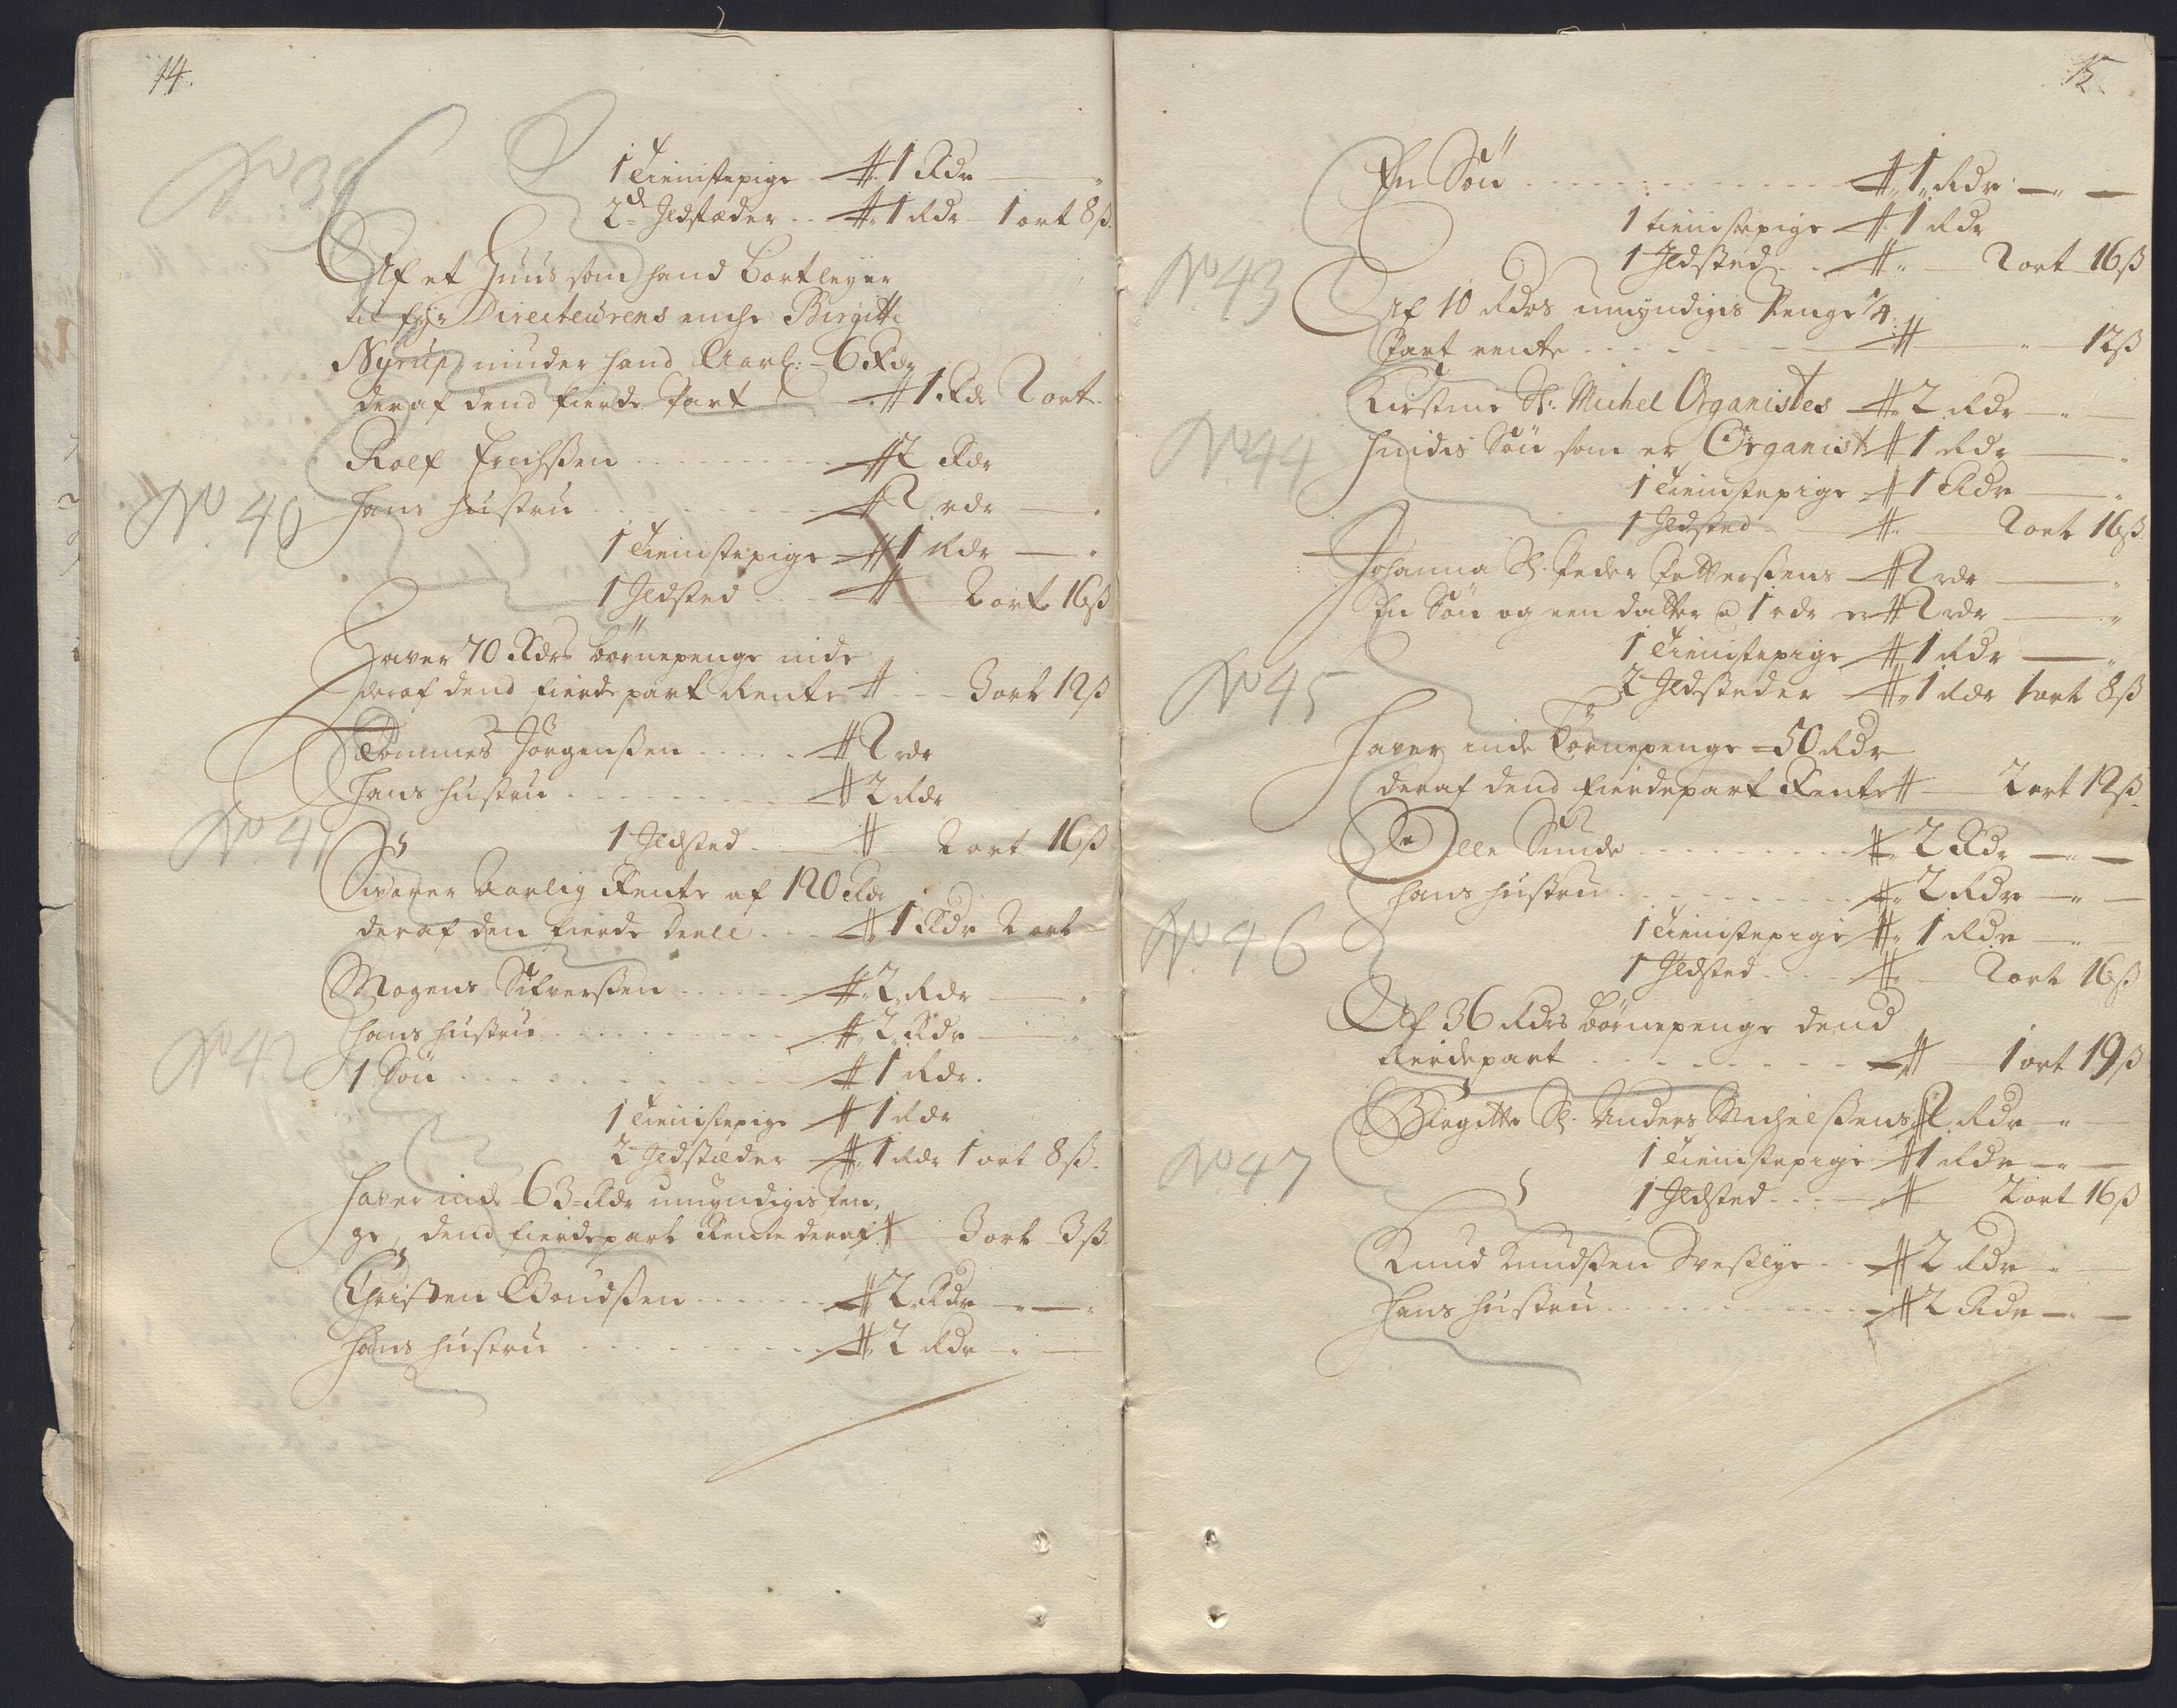 14.
No 39
1 Tienistepige # 1 Rdr
2de Ildstæder # 1 Rdr 1 ort 8 ß
Af et Huus som hand bortleyer
til Directeurens enche Birgitte
Nyrup, ninder hand Aarl: 6 Rdr
deraf dend fierde part # 1 Rdr 2 ort
No 40
Rolf Erichßen # 2 Rdr
Hans hustru # 2 rdr
1 Tienistepige # 1 Rdr
1 Ildsted # 2 ort 16 ß
Haver 70 Rdrs börnepenge inde
deraf dend fierdepart Rente # 3 ort 12 ß
No 41
Tommes Jörgenßen # 2 rdr
Hans hustru # 2 Rdr
1 Ildsted # 2 ort 16 ß
Svarer Aarlig Rente af 120 Rdr
deraf den fierde deell # 1 Rdr 2 ort
No 42
Mogens Siverßen # 2 Rdr
Hans hustru # 2 Rdr
1 Sön # 1 Rdr.
1 Tienistepige # 1 Rdr
2 Ildstæder # 1 Rdr 1 ort 8 ß.
Haver inde 63 Rdr umyndigis pen,
ge, dend fierdepart Rente deraf # 3 ort 3 ß
Christen Knudßen # 2 Rdr
Hans hustru # 2 Rdr
15.
En Sön # 1 Rdr
1 tienistepige # 1 Rdr
1 Ildsted # 2 ort 16 ß
No 43
Af 10 Rdrs umyndigis Penge 1/4
Part rente # 12 ß
No 44
Kirstine Sl: Michel Organistes # 2 Rdr
Hindis Sön som er Organist # 1 Rdr
1 Tienistepige # 1 Rdr
1 Ildsted # 2 ort 16 ß
Johanna Sl. Peder Petterßens # 2 rdr
En Sön og een datter a 1 rdr er # 2 rdr
No 45
1 Tienistepige # 1 Rdr
2 Ildsteder # 1 Rdr 1 ort 8 ß
Haver inde Börnepenge = 50 Rdr
deraf dend fierdepart Rente # 2 ort 12 ß
Olle Sunde # 2 Rdr
Hans hustru # 2 Rdr
No 46
1 Tienistepige # 1 Rdr
1 Ildsted # 2 ort 16 ß
Af 36 Rdrs börnepenge dend
fierdepart # 1 ort 19 ß
No 47
Birgitte Sl. Anders Michelßens # 2 Rdr
1 Tienistepige # 1 Rdr
1 Ildsted # 2 ort 16 ß
Knud Knudßen # 2 Rdr
Hans hustru # 2 Rdr